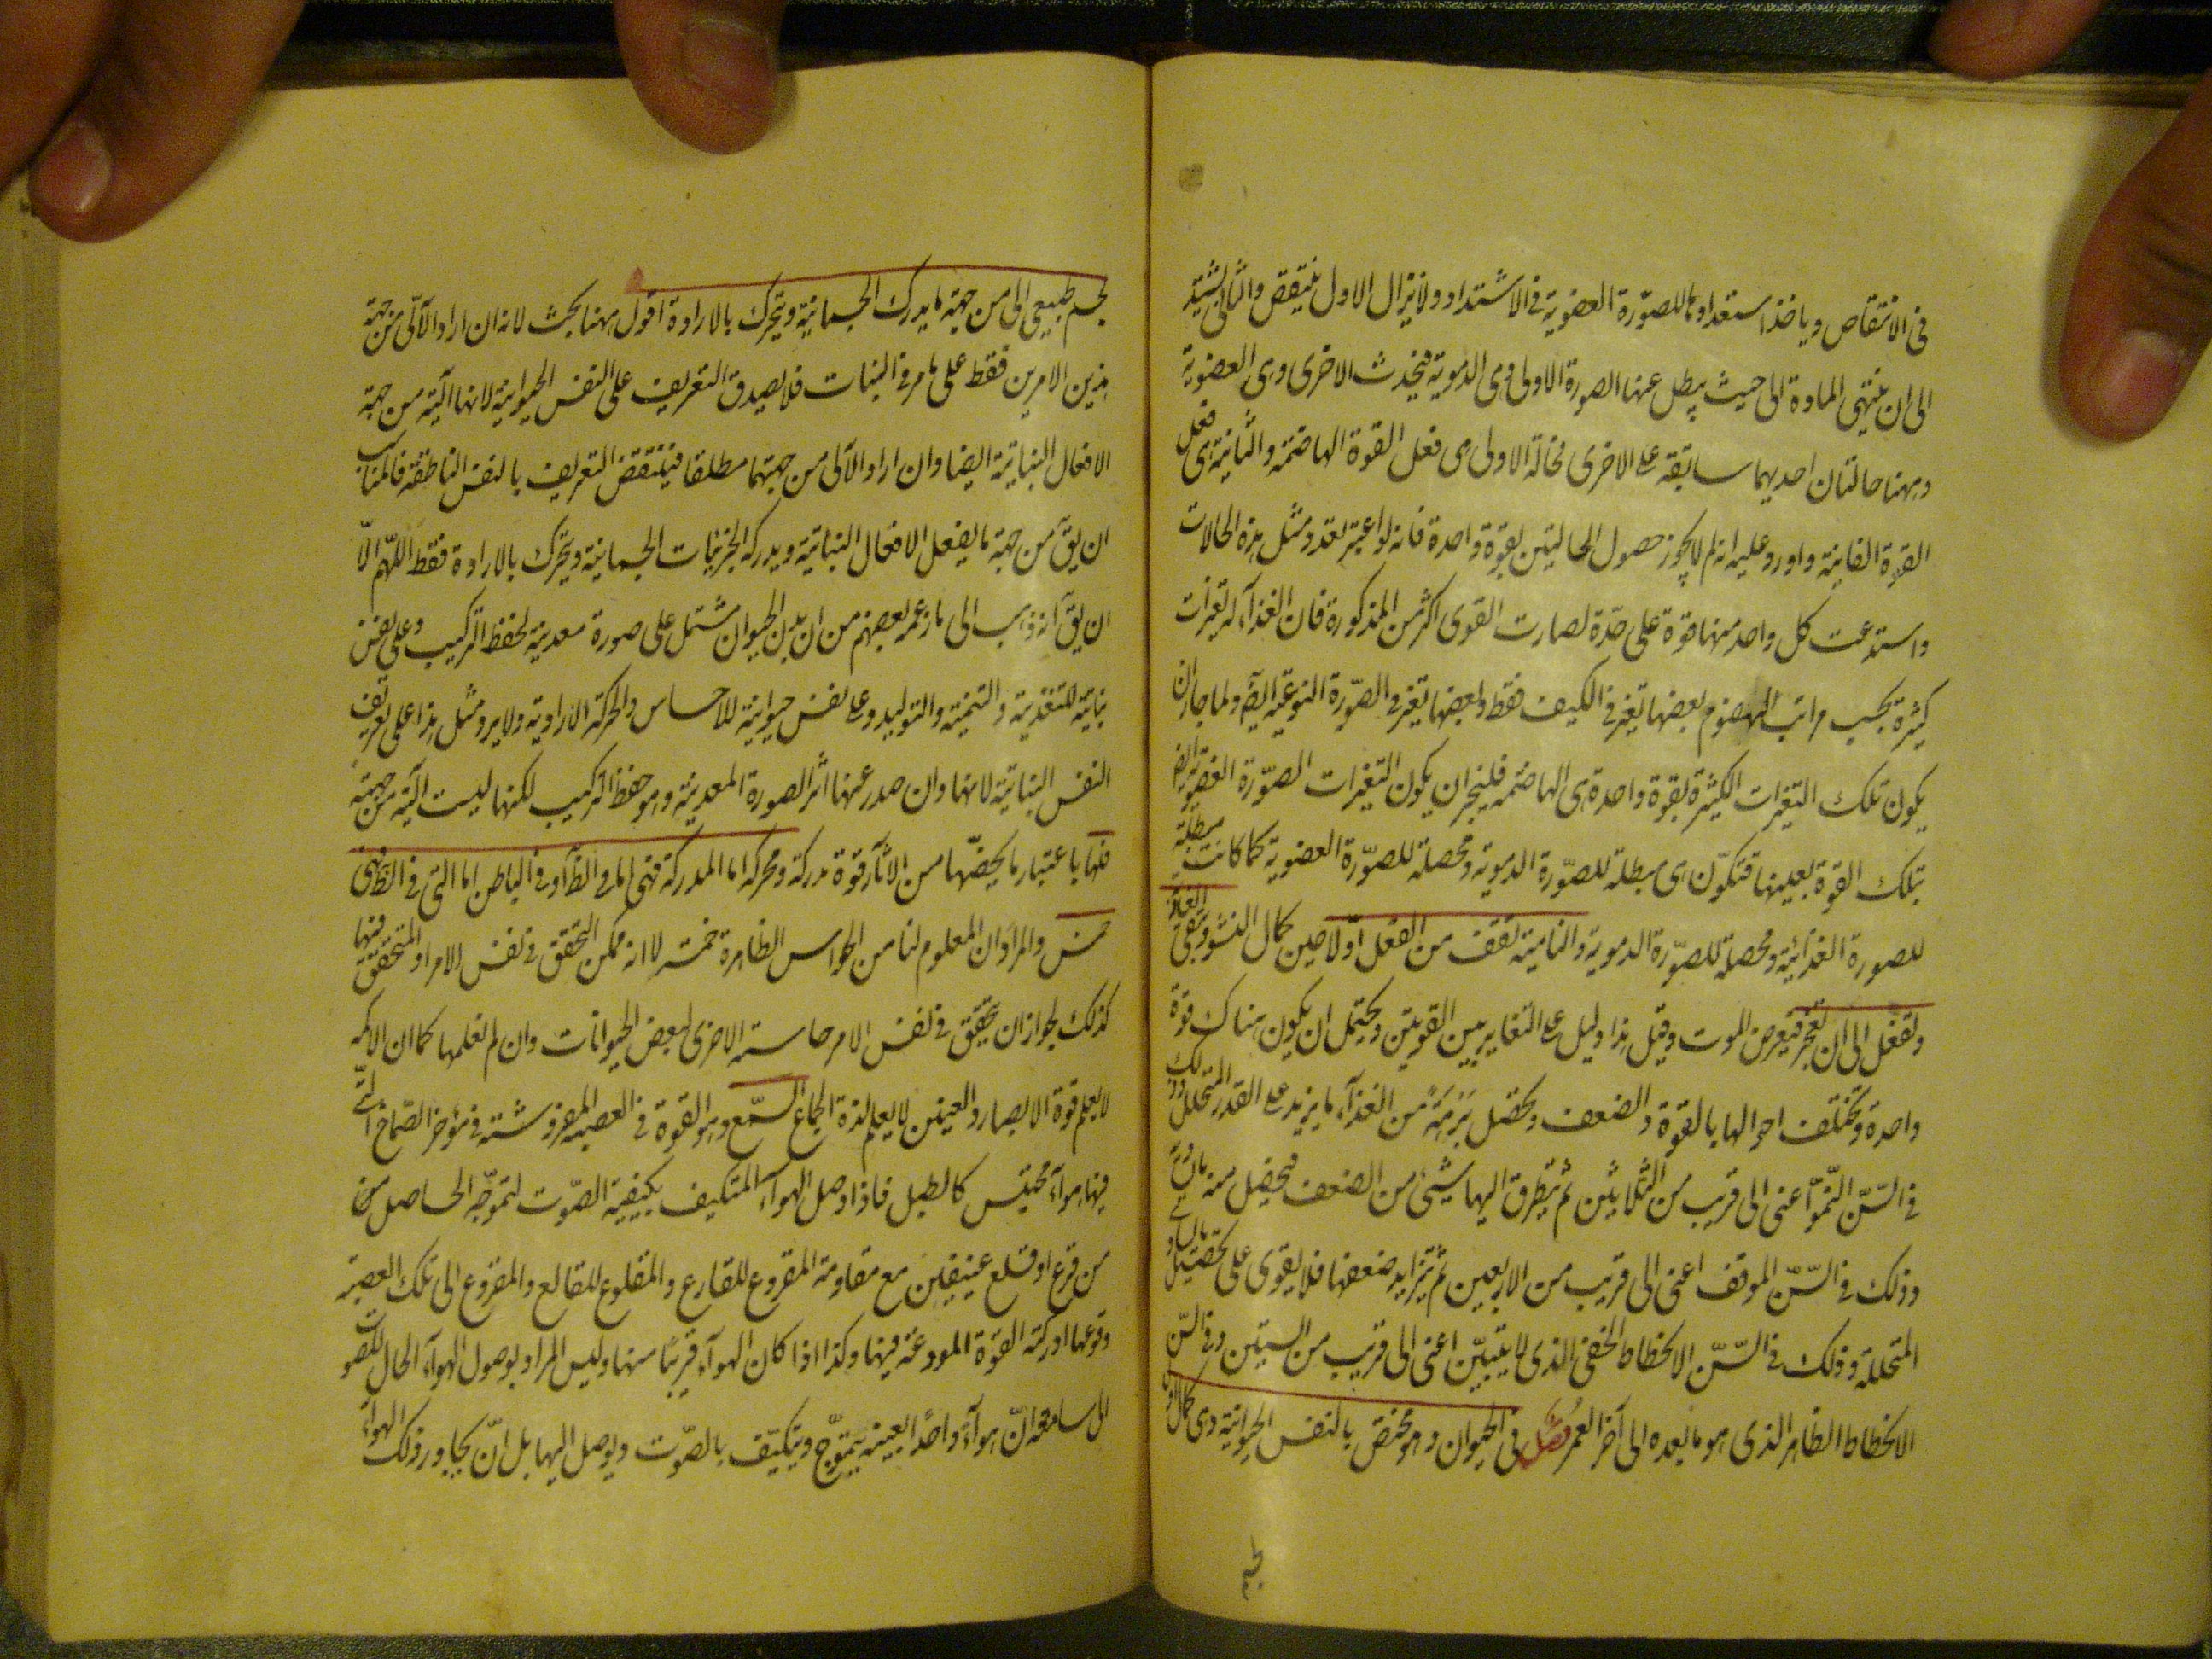 فى الانتقاص وياخذ استعدادها للصورة العضوية فى الاشتداد ولا يزال الاول ينتقص والثانى يشتد
الى ان ينتهى المادة الى حيث يبطل عنها الصورة الاولى وهى الدموية فيحدث الاخرى وهى العضوية
وههنا حالتان احديهما سابقة على الاخرى فحالة الاولى هى فعل القوة الهاضمة والثانية هى فعل
القوة الغاذية واورد عليه انه لم لا يجوز حصول الحالتين بقوة واحدة فانه لو اعتبر تعدد مثل هذه الحالات
واستدعت كل واحد منها قوة على حدة لصارت القوى اكثر من المذكورة فان الغذاء له تغيرات
كثيرة بحسب مراتب الهضوم بعضها تغير فى الكيف فقط وبعضها تغير فى الصورة النوعية ايضا ولما جاز ان
يكون تلك التغيرات الكثيرة بقوة واحدة هى الهاضمة فليجز ان يكون التغيرات الصورة العضوية ايضا
بتلك القوة بعينها فتكون هى مبطلة للصورة الدموية ومحصلة للصورة العضوية كما كانت مبطلة
للصورة الغذائية ومحصلة للصورة الدموية والنامية تقف من الفعل اولا حين كمال النشو وتبقى الغاذية
وتفعل الى ان تعجز فيعرض الموت وقيل هذا دليل على التغاير بين القوتين ويحتمل ان يكون هناك قوة
واحدة وتختلف احوالها بالقوة والضعف وتحصل من الغذاء ما يزيد على القدر المتحلل وذلك
فى السن النمو اعنى الى قريب من الثلاثين ثم يتطرق اليها شيئ من الضعف فيحصل منه ما يساويه
وذلك فى السن الموقف اعنى الى قريب من الاربعين ثم يتزايد ضعفها فلا يقوى على تحصيل
المتحللة وذلك فى السن الانحطاط الخفى الذى لا يتبين اعنى الى قريب من الستين وفى السن
الانحطاط الظاهر الذى هو ما بعده الى آخر العمر فصل فى الحيوان وهو مختص بالنفس الحيوانية وهى كمال اول
لجسم
لجسم طبيعى آلى من جهة ما يدرك الجسمانية ويتحرك بالارادة اقول ههنا بحث لانه ان اراد الآلى من جهة
هذين الامرين فقط على ما مر فى النبات فلا يصدق التعريف على النفس الحيوانية لانها آلية من جهة
الافعال النباتية ايضا وان اراد الآلى من جهتهما مطلقا فينتقض التعريف بالنفس الناطقة فالمناسب
ان يق من جهة ما يفعل الافعال النباتية ويدركه الجزئيات الجسمانية ويتحرك بالارادة فقط اللهم الا
ان يق انه ذهب الى ما زعمه بعضهم من ان بدن الحيوان مشتمل على صورة معدنية لحفظ التركيب وعلى نفس
نباتية للتغذية والتنمية والتوليد وعلى نفس حيوانية للاحساس والحركة الارادية ولا يرد مثل هذا على تعريف
النفس النباتية لانها وان صدر عنها اثر الصورة المعدنية وهو حفظ التركيب لكنها ليست آلية من جهته
فلها باعتبار ما يخصها من الآثار قوة مدركة ومحركة اما المدركة فهى اما فى الظ او فى الباطن اما التى فى الظ فهى
خمس والمراد ان المعلوم لنا من الحواس الظاهرة خمسة لا انه ممكن التحقق فى نفس الامر او المتحقق فيها
كذلك لجواز ان يتحقق فى نفس الامر حاسة الاخرى لبعض الحيوانات وان لم نعلمها كما ان الاكمه
لا يعلم قوة الابصار والعينين لا يعلم لذة الجماع السمع وهو القوة فى العصبة المفروشة فى مؤخر الصماخ التى
فيها هواء محتبس كالطبل فاذا وصل الهواء المتكيف بكيفية الصوت لتموجه الحاصل من
من قرع او قلع عنيفين مع مقاومة المقروع للقارع والمقلوع للقالع والمقروع الى تلك العصبة
وقوعها ادركته القوة المودعة فيها وكذا اذا كان الهواء قريبا منها وليس المراد بوصول الهواء الحامل للصوت
الى السامعة ان هواء واحدا بعينه يتموج ويتكيف بالصوت ويوصل اليها بل ان يجاور ذلك الهواء